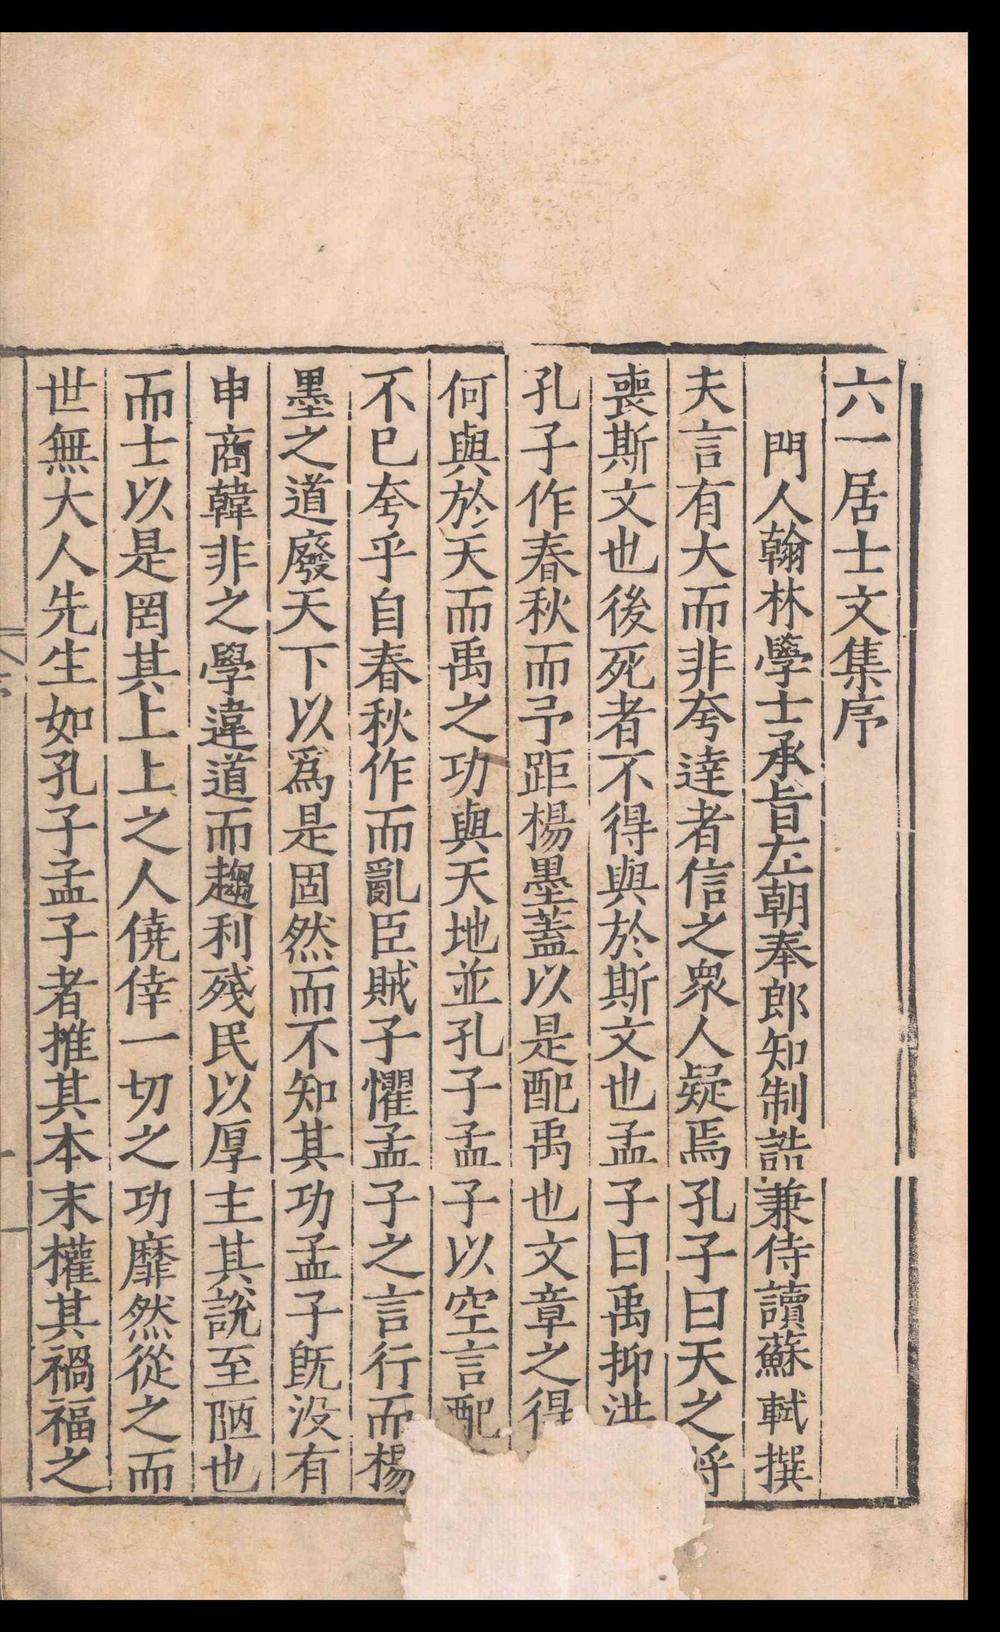 六一居士文集序
門人翰林學士承旨左朝奉郎知制誥兼侍讀蘇軾撰
夫言有大而非夸達者信之衆人疑焉孔子曰天之將
喪斯文也後死者不得與於斯文也孟子曰禹抑洪
孔子作春秋而予距楊墨蓋以是配禹也文章之得
何與於天而禹之功與天地並孔子孟子以空言配
不已夸乎自春秋作而亂臣賊子懼孟子之言行而楊
墨之道廢天下以爲是固然而不知其功孟子旣没有
申商韓非之學違道而趨利殘民以厚主其說至陋也
而士以是罔其上上之人僥倖一切之功靡然從之而
世無大人先生如孔子孟子者推其本末權其禍福之